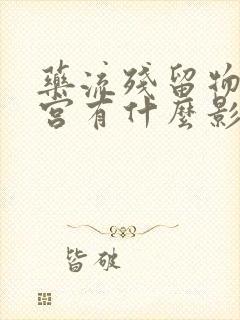 藥流殘留物
宮有什麼影
皆破